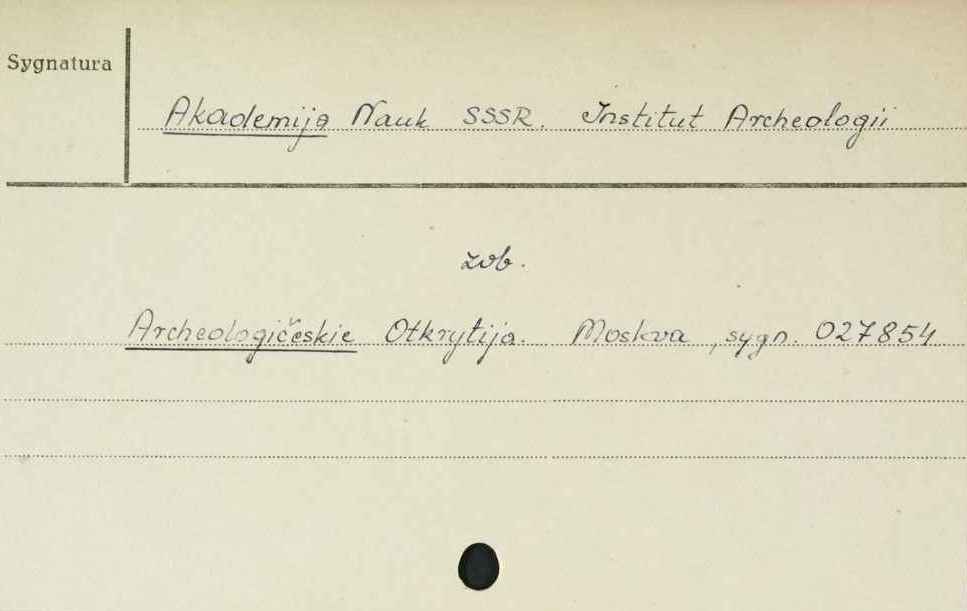 Sygnatura
Akademija Nauk SSSR. Institut Archeologii
zob.
Archeologičeskie Otkrytija. Moskva, sygn. 027854